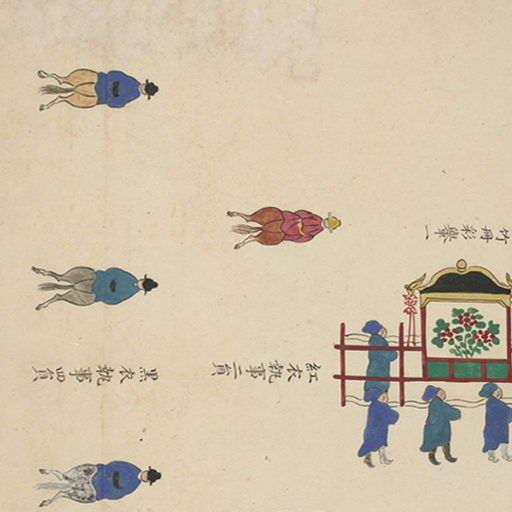 竹冊彩轝一
紅衣執事二員
黑衣執事四員